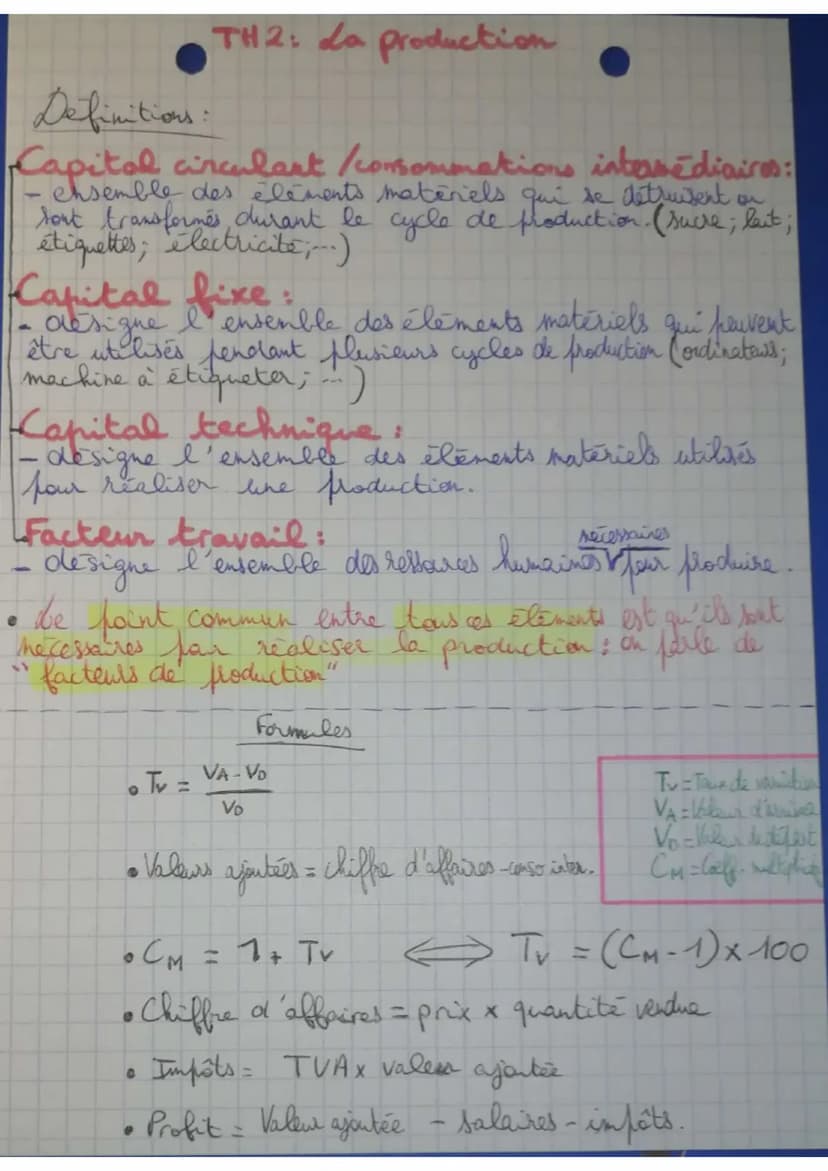 TH2: La production
Définitions:
Capital circulant / consommations intermédiaires:
- ensemble des éléments matériels qui se détruisent ou
sont transformés durant le cycle de production. (sucre; lait;
étiquettes; électricité;...)
Capital fixe:
- désigne l'ensemble des éléments matériels qui peuvent
être utilisés pendant plusieurs cycles de production (ordinateurs;
machine à étiqueter; ...)
Capital technique:
- désigne l'ensemble des éléments matériels utilisés
pour réaliser une production.
Facteur travail:
- désigne l'ensemble des ressources humaines nécessaires pour produire.
• Le point commun entre tous ces éléments est qu'ils sont
nécessaires par réaliser la production: on parle de
"facteurs de production"
Formules
• Tv = (VA - VD) / VD
Tv = Taux de variation
VA = Valeur d'arrivée
VD = Valeur de départ
CM = Coeff. multiplic
• Valeurs ajoutées = chiffre d'affaires - conso inter.
• CM = 1 + Tv ⟺ Tv = (CM - 1) x 100
• Chiffre d'affaires = prix x quantité vendue
• Impôts = TVA x valeur ajoutée
• Profit = Valeur ajoutée - salaires - impôts.